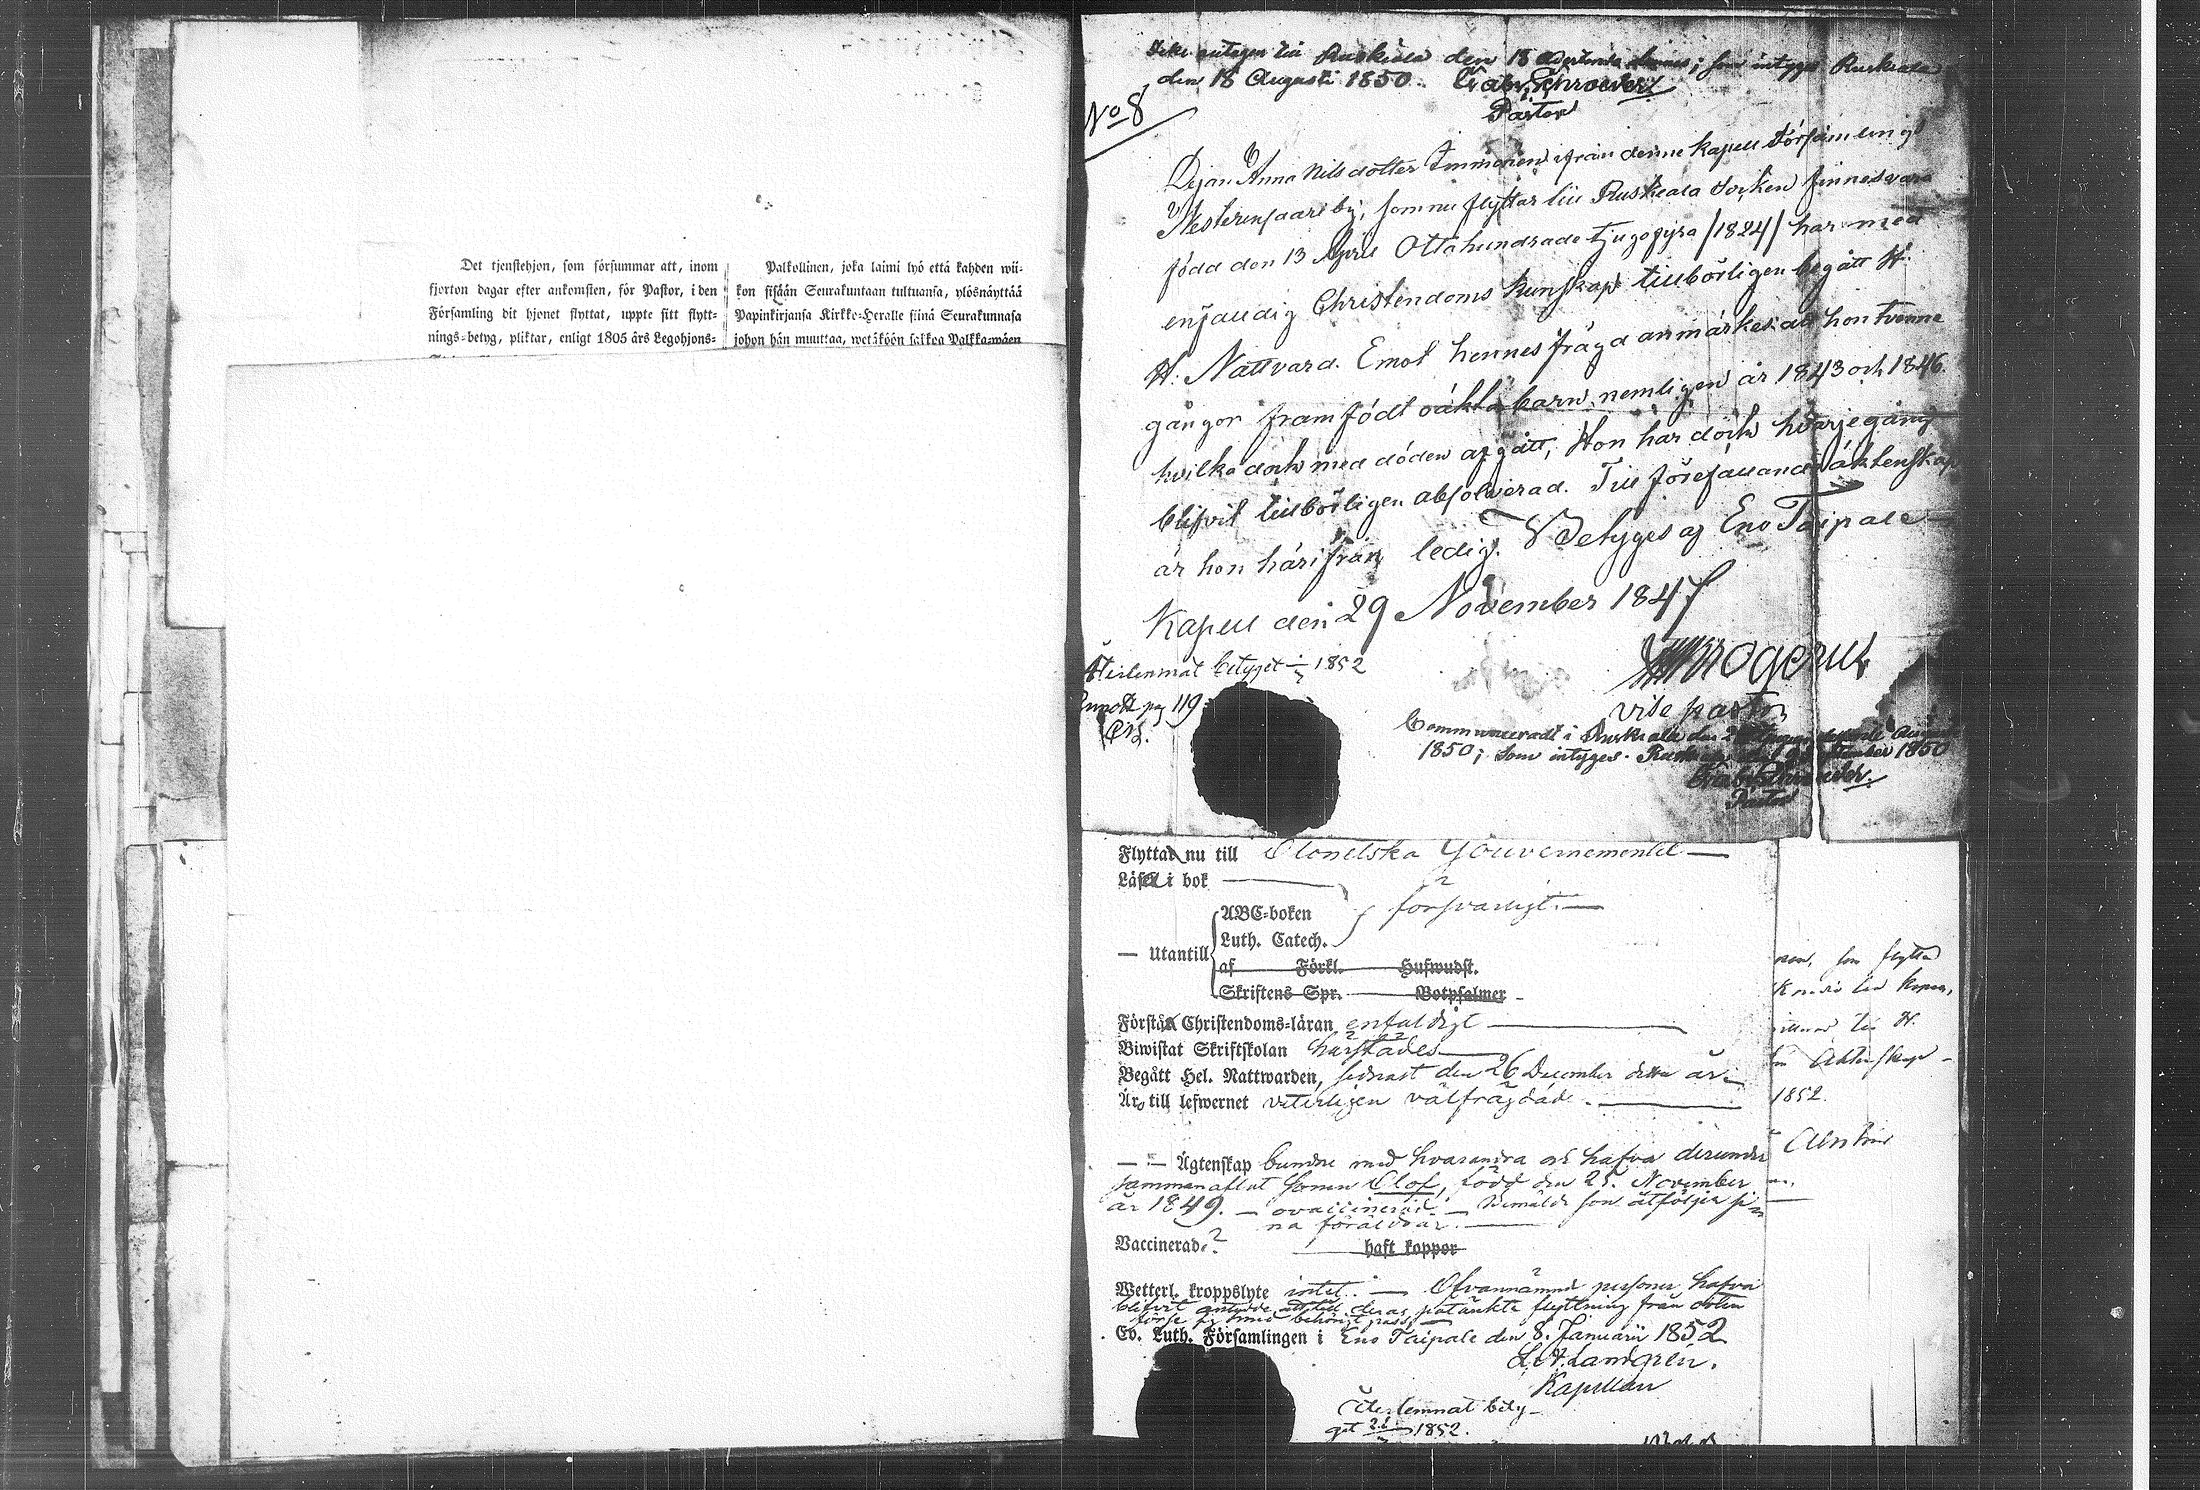 Det tjenstehjon, som försummar att, inom
fjorton dagar efter ankomsten, för Pastor, i den
Församling dit hjonet flyttat, uppte sitt flytt-
nings-betyg, pliktar, enligt 1805 års Legohjons-
Palkollinen, joka laimi lyö että kahden wii-
kon sisään Seurakuntaan tultuansa, ylösnäyttää
Papinkirjansa Kirkko-Heralle siinä Seurakunnasa
johon hän muuttaa, wetäköön sakkoa Palkka-wäen
antagen till Ruskeala den 18 som intygas Ruskeala
den 18 Augusti 1850. Gabr. Schroeder
Pastor
No 8
Pigan Anna Nilsdotter Immonen ifrån denne kapell Församlings
by, som nu flyttar till Ruskeala Socken
född den 13 April Ottahundrade tjugofyra /1824/ har med
enfaldig Christendoms kunskap tillbörligen begått H.
H. Nattvard. Emot hennes frägd anmärkes att hon tvenne
gångor framfödt oäkta barn, nemligen år 1843 och 1846.
hvilka dock med döden afgått, Hon har dock hvarje gång
blifvit tillbörligen absolverad. Till förefallande äktenskap
är hon härifrån ledig. Betyges af Eno Taipale
Kapell den 29 November 1847
Krogerus
vice pastor
Återlemnat betyget 1852
pag 119
Communiceradt i Ruskeala den 2 Augusti
1850; som intygas. 1850
Gabr. Schroeder.
Pastor
Flyttar nu till Olonetska Gouvernementet —
Läsa i bok —
försvarligt. —
— Utantill
ABC-boken
Luth. Catech.
af Förkl. Hufwudst.
Skriftens Spr. Botpsalmer
Förstå Christendoms-läran enfaldigt —
Biwistat Skriftskolan härstädes —
Begått Hel. Nattwarden, sednast den 26 December detta år —
Äro till lefwernet veterligen välfrägdade. —
— — Ägtenskap bundne med hvarandra och hafva derunder
sammanaflat sonen Olof, född den 25. November
år 1849. — ovaccinerad. — Bemälde son åtföljer si-
na föräldrar. —
Vaccinerade?
haft koppor
Wetterl. kroppslyte intet. — Ofvannämnde personer hafva
blifvit att till deras påtänkta flyttning från orten
förse sig med behörigt pass. —
Ev. Luth. Församlingen i Eno Taipale den 8. Januarii 1852
L. A. Landgrén.
Kapellan
Återlemnat bety-
get 1852.
som flyttar
till H.
Äktenskap —
1852.